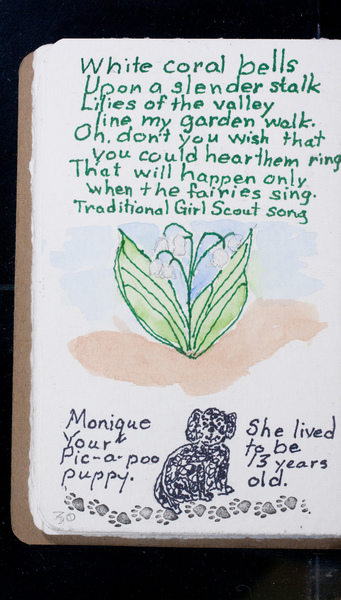 White coral bells
Upon a slender stalk
Lilies of the valley
line my garden walk.
Oh, don't you wish that
you could hear them ring
That will happen only
when the fairies sing.
Traditional Girl Scout song
Monique
Your
Pic-a-poo
puppy.
She lived
to be
13 years
old.
30